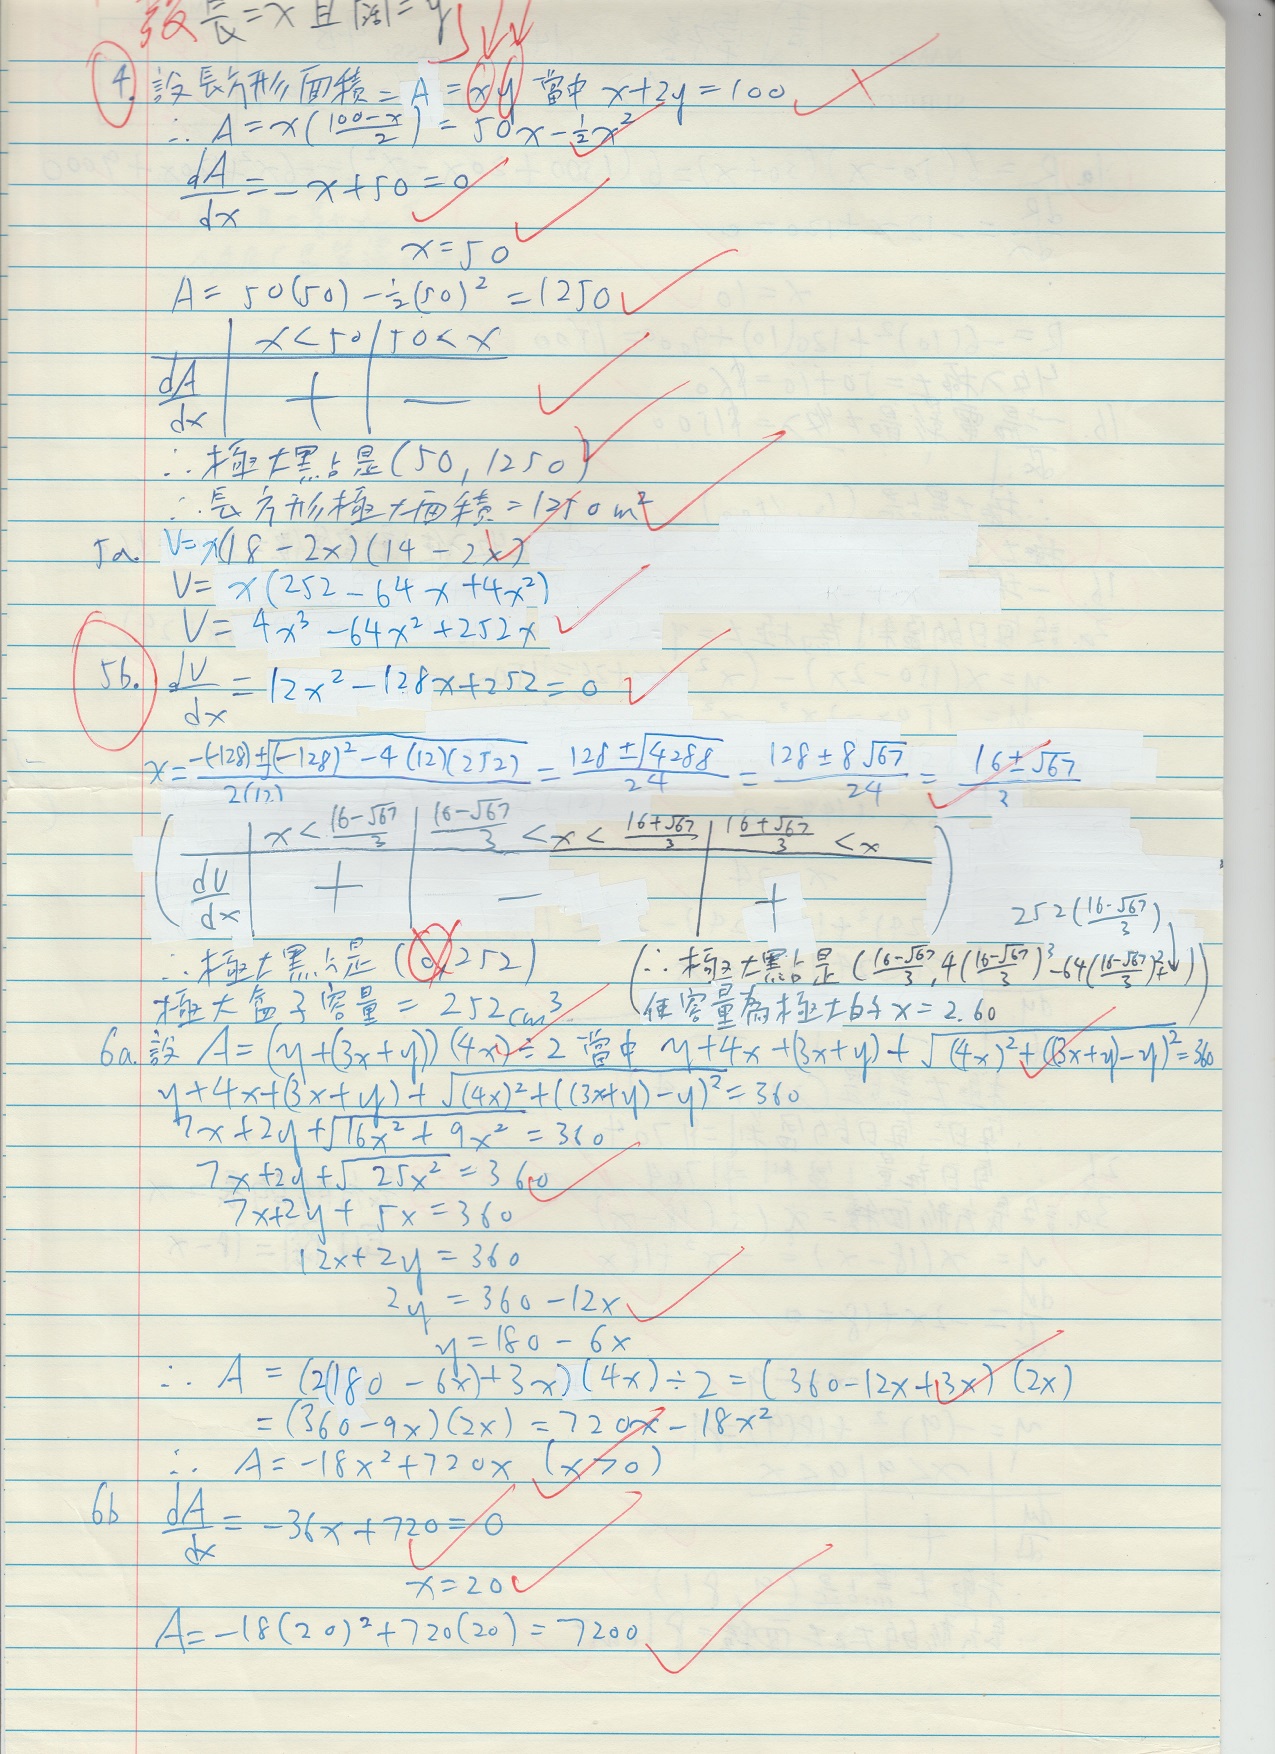 設長=x且闊=y
4. 設長方形面積=A=xy 當中 x+2y=100
∴ A=x(\frac{100-x}{2})=50x-\frac{1}{2}x²
\frac{dA}{dx}=-x+50=0
x=50
A=50(50)-\frac{1}{2}(50)²=1250
x<50 | 50<x
\frac{dA}{dx} | + | —
∴極大點是(50,1250)
∴長方形極大面積=1250m²
5a. V=x(18-2x)(14-2x)
V=x(252-64x+4x²)
V=4x³-64x²+252x
5b. \frac{dV}{dx}=12x²-128x+252=0
x=\frac{-(-128)±√((-128)²-4(12)(252))}{2(12)}=\frac{128±√4288}{24}=\frac{128±8√67}{24}=\frac{16±√67}{3}
( x<\frac{16-√67}{3} | \frac{16-√67}{3}<x<\frac{16+√67}{3} | \frac{16+√67}{3}<x )
\frac{dV}{dx} | + | — | +
252(\frac{16-√67}{3})
∴極大點是(0,252)
(∴極大點是(\frac{16-√67}{3},4(\frac{16-√67}{3})³-64(\frac{16-√67}{3})²+))
極大盒子容量=252cm³
使容量為極大的x=2.60
6a. 設 A=(y+(3x+y))(4x)÷2 當中 y+4x+(3x+y)+√((4x)²+((3x+y)-y)²)=360
y+4x+(3x+y)+√((4x)²+((3x+y)-y)²)=360
7x+2y+√(16x²+9x²)=360
7x+2y+√(25x²)=360
7x+2y+5x=360
12x+2y=360
2y=360-12x
y=180-6x
∴ A=(2(180-6x)+3x)(4x)÷2=(360-12x+3x)(2x)
=(360-9x)(2x)=720x-18x²
∴ A=-18x²+720x (x>0)
6b \frac{dA}{dx}=-36x+720=0
x=20
A=-18(20)²+720(20)=7200